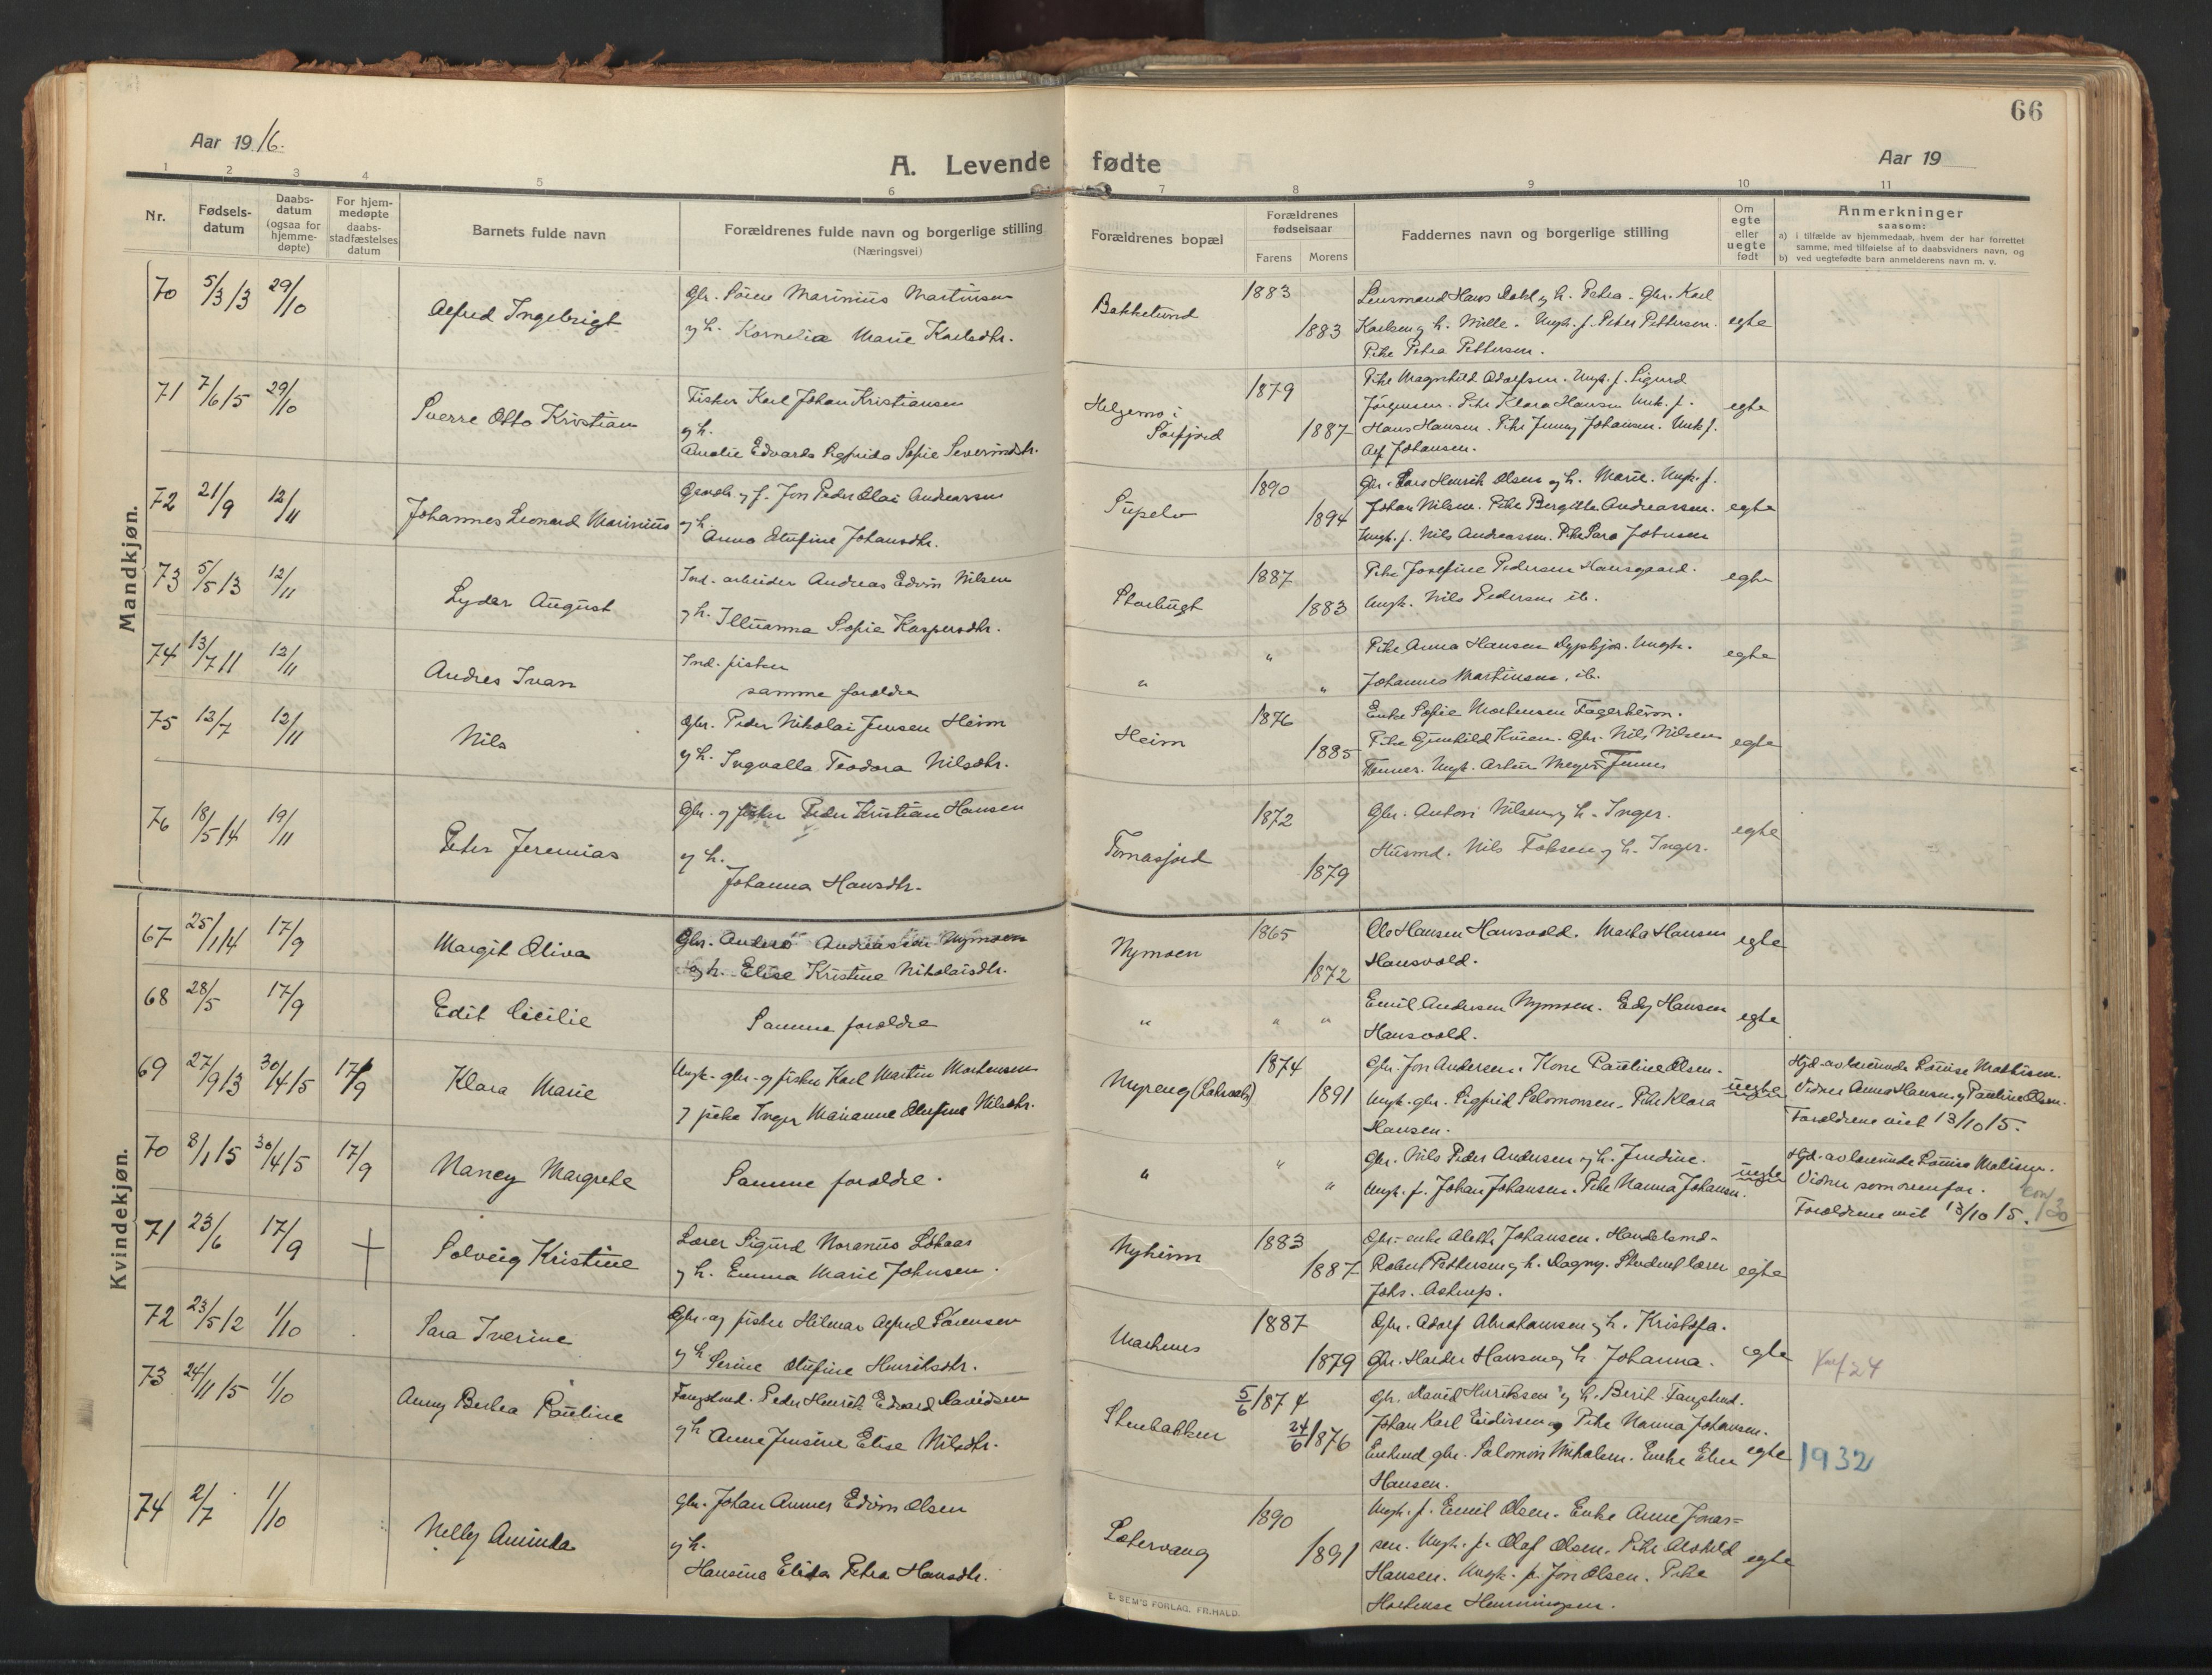 66
Aar 1916.
A. Levende fødte
Aar 19
1 2 3 4 5 6 7 8 9 10 11
Nr.
Fødselsdatum
Daabsdatum (ogsaa for hjemmedøpte)
For hjemmedøpte daabsstadfæstelses datum
Barnets fulde navn
Forældrenes fulde navn og borgerlige stilling
(Næringsvei)
Forældrenes bopæl
Forældrenes fødselsaar
Farens Morens
Faddernes navn og borgerlige stilling
Om egte eller uegte født
Anmerkninger
saasom:
a) i tilfælde av hjemmedaab, hvem der har forrettet
samme, med tilføielse af to daabsvidners navn, og
b) ved uegtefødte barn anmelderens navn m. v.
Mandkjøn.
70 5/3 13 29/10 Alfred Ingebrigt
Gbr. Sören Marinius Martinsen
og h. Kornelia Marie Karlsdtr.
Bakkelund 1883 1883
Lensmand Hans Dahl og h. Petra. Gbr. Karl
Karlsen og h. Mille. Ungk. f. Peter Pettersen.
Pike Petra Pettersen.
egte
71 7/6 15 29/10 Sverre Otto Kristian
Fisker Karl Johan Kristiansen
og h.
Amalie Edvarda Sigfrida Sofie Severinsdtr.
Helgemo i
Sörfjord
1879 1887
Pike Magnhild Adolfsen. Ungk. f. Sigurd
Jörgensen. Pike Klara Hansen Unk. f.
Hans Hansen. Pike Jenny Johansen. Unk f.
Alf Johansen.
egte
72 21/9 12/11 Johannes Leonard Marinius
Peder Olai Andreassen
og h.
Anna Olufine Johansdtr.
Süpelv 1890 1894
Gbr. Lars Henrik Olsen og h. Marie. Ungk. f.
Johan Nilsen. Pike Bergitte Andreassen.
Ungk. f. Nils Andreassen. Pike Sara Johnsen
egte
73 5/5 13 12/11 Lyder August
Ind. arbeider Andreas Edvin Nilsen
og h. Illuanna Sofie Kaspersdtr.
Storbugt 1887 1883
Pike Josefine Pedersen Hansgaard.
Ungk. Nils Pedersen ib.
egte
74 13/7 11 12/11 Andres Ivan
Ind. fisker
samme foreldre
" " "
Pike Anna Hansen Dypkjos. Ungk.
Johannes Martinsen, ib.
egte
75 12/7 12/11 Nils
Gbr. Peder Nikolai Jensen Heim
og h. Ingvalla Teodora Nilsdtr.
Heim 1876 1885
Enke Sofie Mortensen Fagerheim.
Pike Gunhild Kven. Gbr. Nils Nilsen
Tennes. Ungk. Artur Meyer Tennes
egte
76 18/5 14 19/11 Peter Jeremias
Gbr. og fisker Peder Kristian Hansen
og h.
Johanna Hansdtr.
Tomasjord 1872 1879
Gbr. Anton Nilsen og h. Inger.
Husmd. Nils og h. Inger.
egte
Kvindekjøn.
67 25/1 14 17/9 Margit Oliva
Gbr. Anders Andreassen Nymoen
og h. Elise Kristine Nikolaisdtr.
Nymoen 1865 1872
Ole Hansen Hansvold. Marta Hansen
Hansvold.
egte
68 28/5 17/9 Edit Cicilie
Samme foreldre
" " "
Emil Andersen Nymoen. Edy Hansen
Hansvold.
egte
69 27/9 13 30/4 15 17/9 Klara Marie
Ungk. gbr. og fisker Karl Martin Mortensen
og pike Inger Marianne Olufine Nilsdtr.
Nyreng 1874 1891
Gbr. Jon Andersen. Kone Pauline Olsen.
Ungk. gbr. Sigfrid Salomonsen. Pike Klara
Hansen.
uegte
Hjd. av lærerinde Louise Mathisen.
Vidner Anna Hansen og Pauline Olsen.
Foreldrene viet 13/10 15.
70 8/1 15 30/4 15 17/9 Nancy Margrete
Samme foreldre.
" " "
Gbr. Nils Peder Andersen og h. Jendine.
Ungk. f. Johan Johansen. Pike Nanna Johansen.
uegte
Hjd. av lærerinde Louise Matisen.
Vidner som ovenfor.
Foreldrene viet 13/10 15.
71 23/6 17/9 Solveig Kristine
Lærer Sigurd Noranus Lökaas
og h. Emma Marie Johnsen.
Nyheim 1883 1887
Gbr. enke Alette Johansen. Handelsmd.
Robert Pettersen og h. Dagny. Student lærer
Johs. Astrup.
egte
72 23/5 12 1/10 Sara Iverine
Gbr. og fisker Hilmar Alfred Sörensen
og h. Serine Olufine Henriksdtr.
1887 1879
Gbr. Adolf Abrahamsen og h. Kristofa.
Gbr. Hansen og h. Johanna.
egte
Konf 24
73 24/11 15 1/10 Anny Berta Pauline
Fangstmd. Peder Henrik Edvard Davidsen
og h. Anne Jensine Elise Nilsdtr.
Stenbakken 5/6 1874 24/6 1876
Gbr. David Henriksen og h. Berit. Fangstmd.
Johan Karl og Pike Nanna Johansen.
Enkemd gbr. Salomon Mikalsen. Enke Elen
Hansen.
egte
1932
74 2/7 1/10 Nelly Aminda
Gbr. Johan Annes Edvin Olsen
og h.
Hansine Elida Petra Hansdtr.
Sætervang 1890 1891
Ungk. f. Emil Olsen. Enke Anne Jonas=
sen. Ungk. f. Olaf Olsen. Pike Alvhild
Hansen. Ungk. f. Jon Olsen. Pike
Hortense Henningsen.
egte
E. SEM'S FORLAG. FR.HALD.